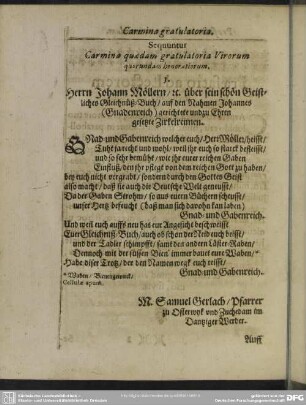 Carmina gratulatoria.
Sequuntur
Carmina quædam gratulatoria Virorum
quorundam honoratiorum.
1.
Herrn Johann Möllern/ ꝛc. über sein schön Geist-
liches Gleichnüß-Buch/ auf den Nahmen Johannes
(Gnadenreich) gerichtete und zu Ehren
gesetzte Zirkelreimen.
GNad- und Gabenreich welcher euch/ Herr Möller/ heisst/
Tuht ja recht und wohl/ weil ihr euch so stark befleisst/
und so sehr bemüht/ wie ihr eurer reichen Gaben
Einfluß/ den ihr pflegt von dem reichen Gott zu haben/
bey euch nicht vergrabt/ sondern durch den Gottes Geist
also macht/ daß sie auch die Deutsche Welt geneusst/
Da der Gaben Strohm/ so aus euren Büchern scheusst/
unser Hertz befeucht (daß man sich davon kan laben)
Gnad- und Gabenreich.
Und weil euch auffs neu hat eur Angesicht beschweisst
Eur Gleichnüß-Buch/ auch ob schon der Neid euch beisst/
und der Tadler schimpfft/ samt den andern Läster-Raben/
Dennoch mit der süssen Bien' immer bauet eure Waben/*
Habt dieser Trotz/ der den Namen weg euch reisst/
Gnad und Gabenreich.
* Waben/ Bienengewirk/
Cellulæ apium.
M. Samuel Gerlach/ Pfarrer
zu Osterwyk und Zuchedam im
Dantziger Werder.
Auff